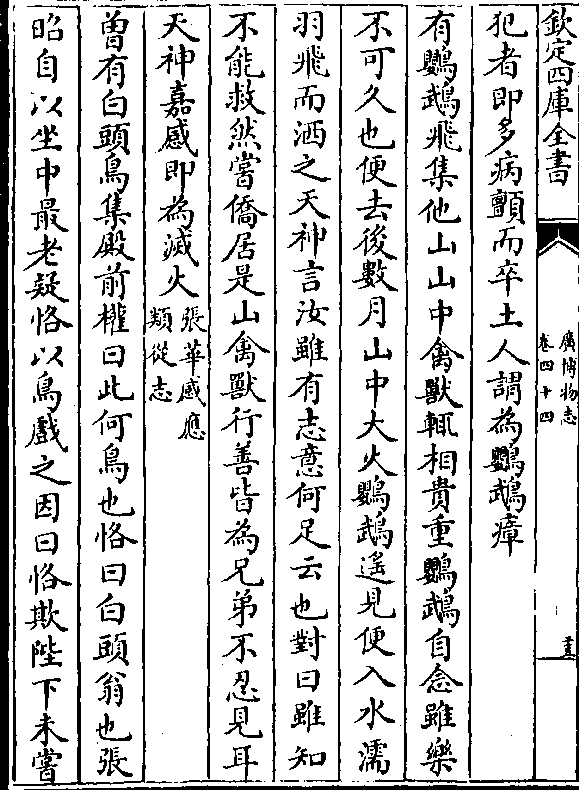 欽定四庫全書
廣博物志
卷四十四
犯者即多病顫而卒土人謂為鸚鵡瘴
有鸚鵡飛集他山山中禽獸輒相貴重鸚鵡自念雖樂
不可久也便去後數月山中大火鸚鵡遙見便入水濡
羽飛而洒之天神言汝雖有志意何足云也對曰雖知
不能救然嘗僑居是山禽獸行善皆為兄弟不忍見耳
天神嘉感即為滅火
張華感應
類從志
曽有白頭鳥集殿前權曰此何鳥也恪曰白頭翁也張
昭自以坐中最老疑恪以鳥戲之因曰恪欺陛下未嘗